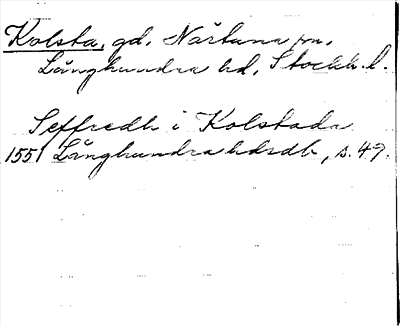 Kolsta, gd, Närtuna sn.
Långhundra hd, Stockh. l.
Seffredh i Kolstada
1551 Långhundra hdrdb, s. 47.